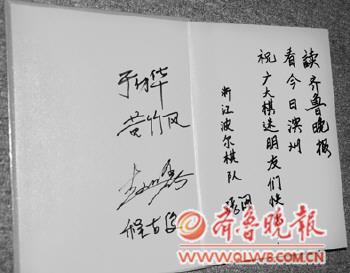 读齐鲁晚报
看今日滨州
祝广大棋迷朋友们快
浙江波尔棋队
于幼华
黄竹风
程吉俊
齐鲁晚报
WWW.QLWB.COM.CN